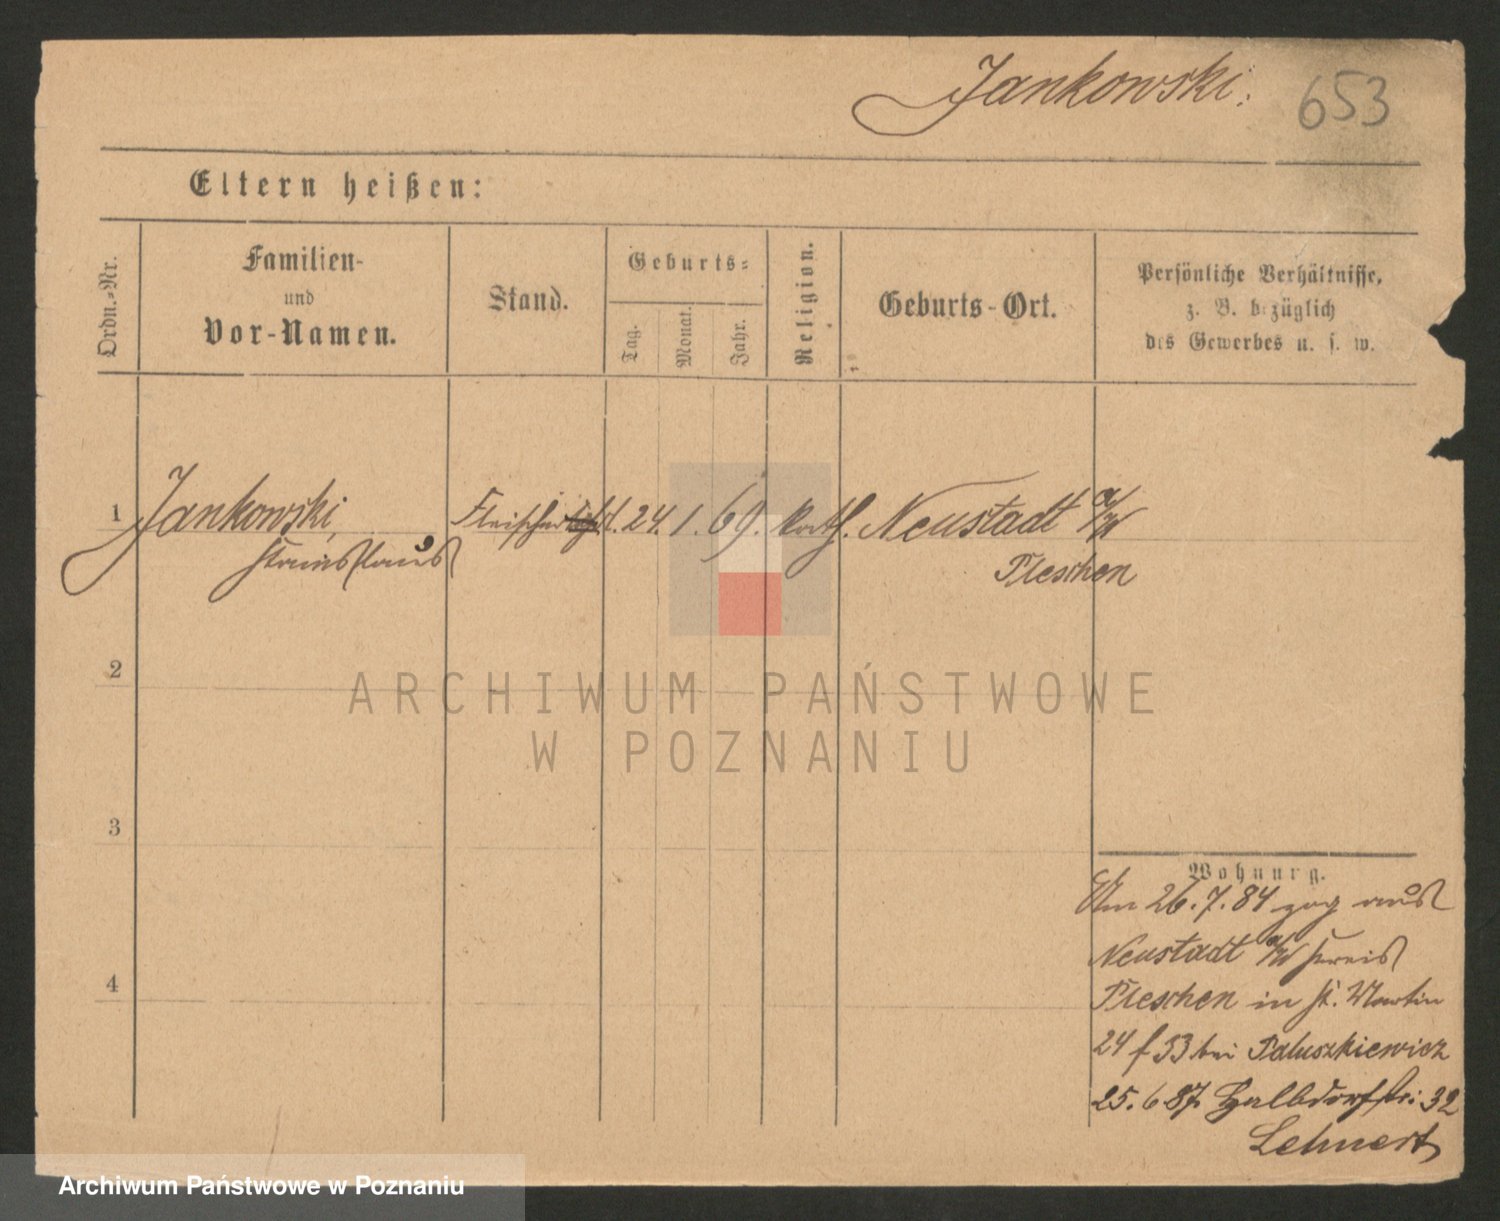 Jankowski. 653
Eltern heißen:
Ordn.-Nr.
Familien-
und
Vor-Namen.
Stand.
Geburts-
Tag.
Monat.
Jahr.
Religion.
Geburts-Ort.
Persönliche Verhältnisse,
z. B. bezüglich
des Gewerbes u. s. w.
1 Jankowski, Fleischer 24. 1. 69. kath. Neustadt a/W
Stanislaus Pleschen
2
ARCHIWUM PAŃSTWOWE
W POZNANIU
3
Wohnung.
Am 26.7.84 zog aus
4
Neustadt a/W Kreis
Pleschen in St. Martin
24 f 33 bei Paluszkiewicz
25.6.87 Halbdorfstr: 32
Lehnert
Archiwum Państwowe w Poznaniu